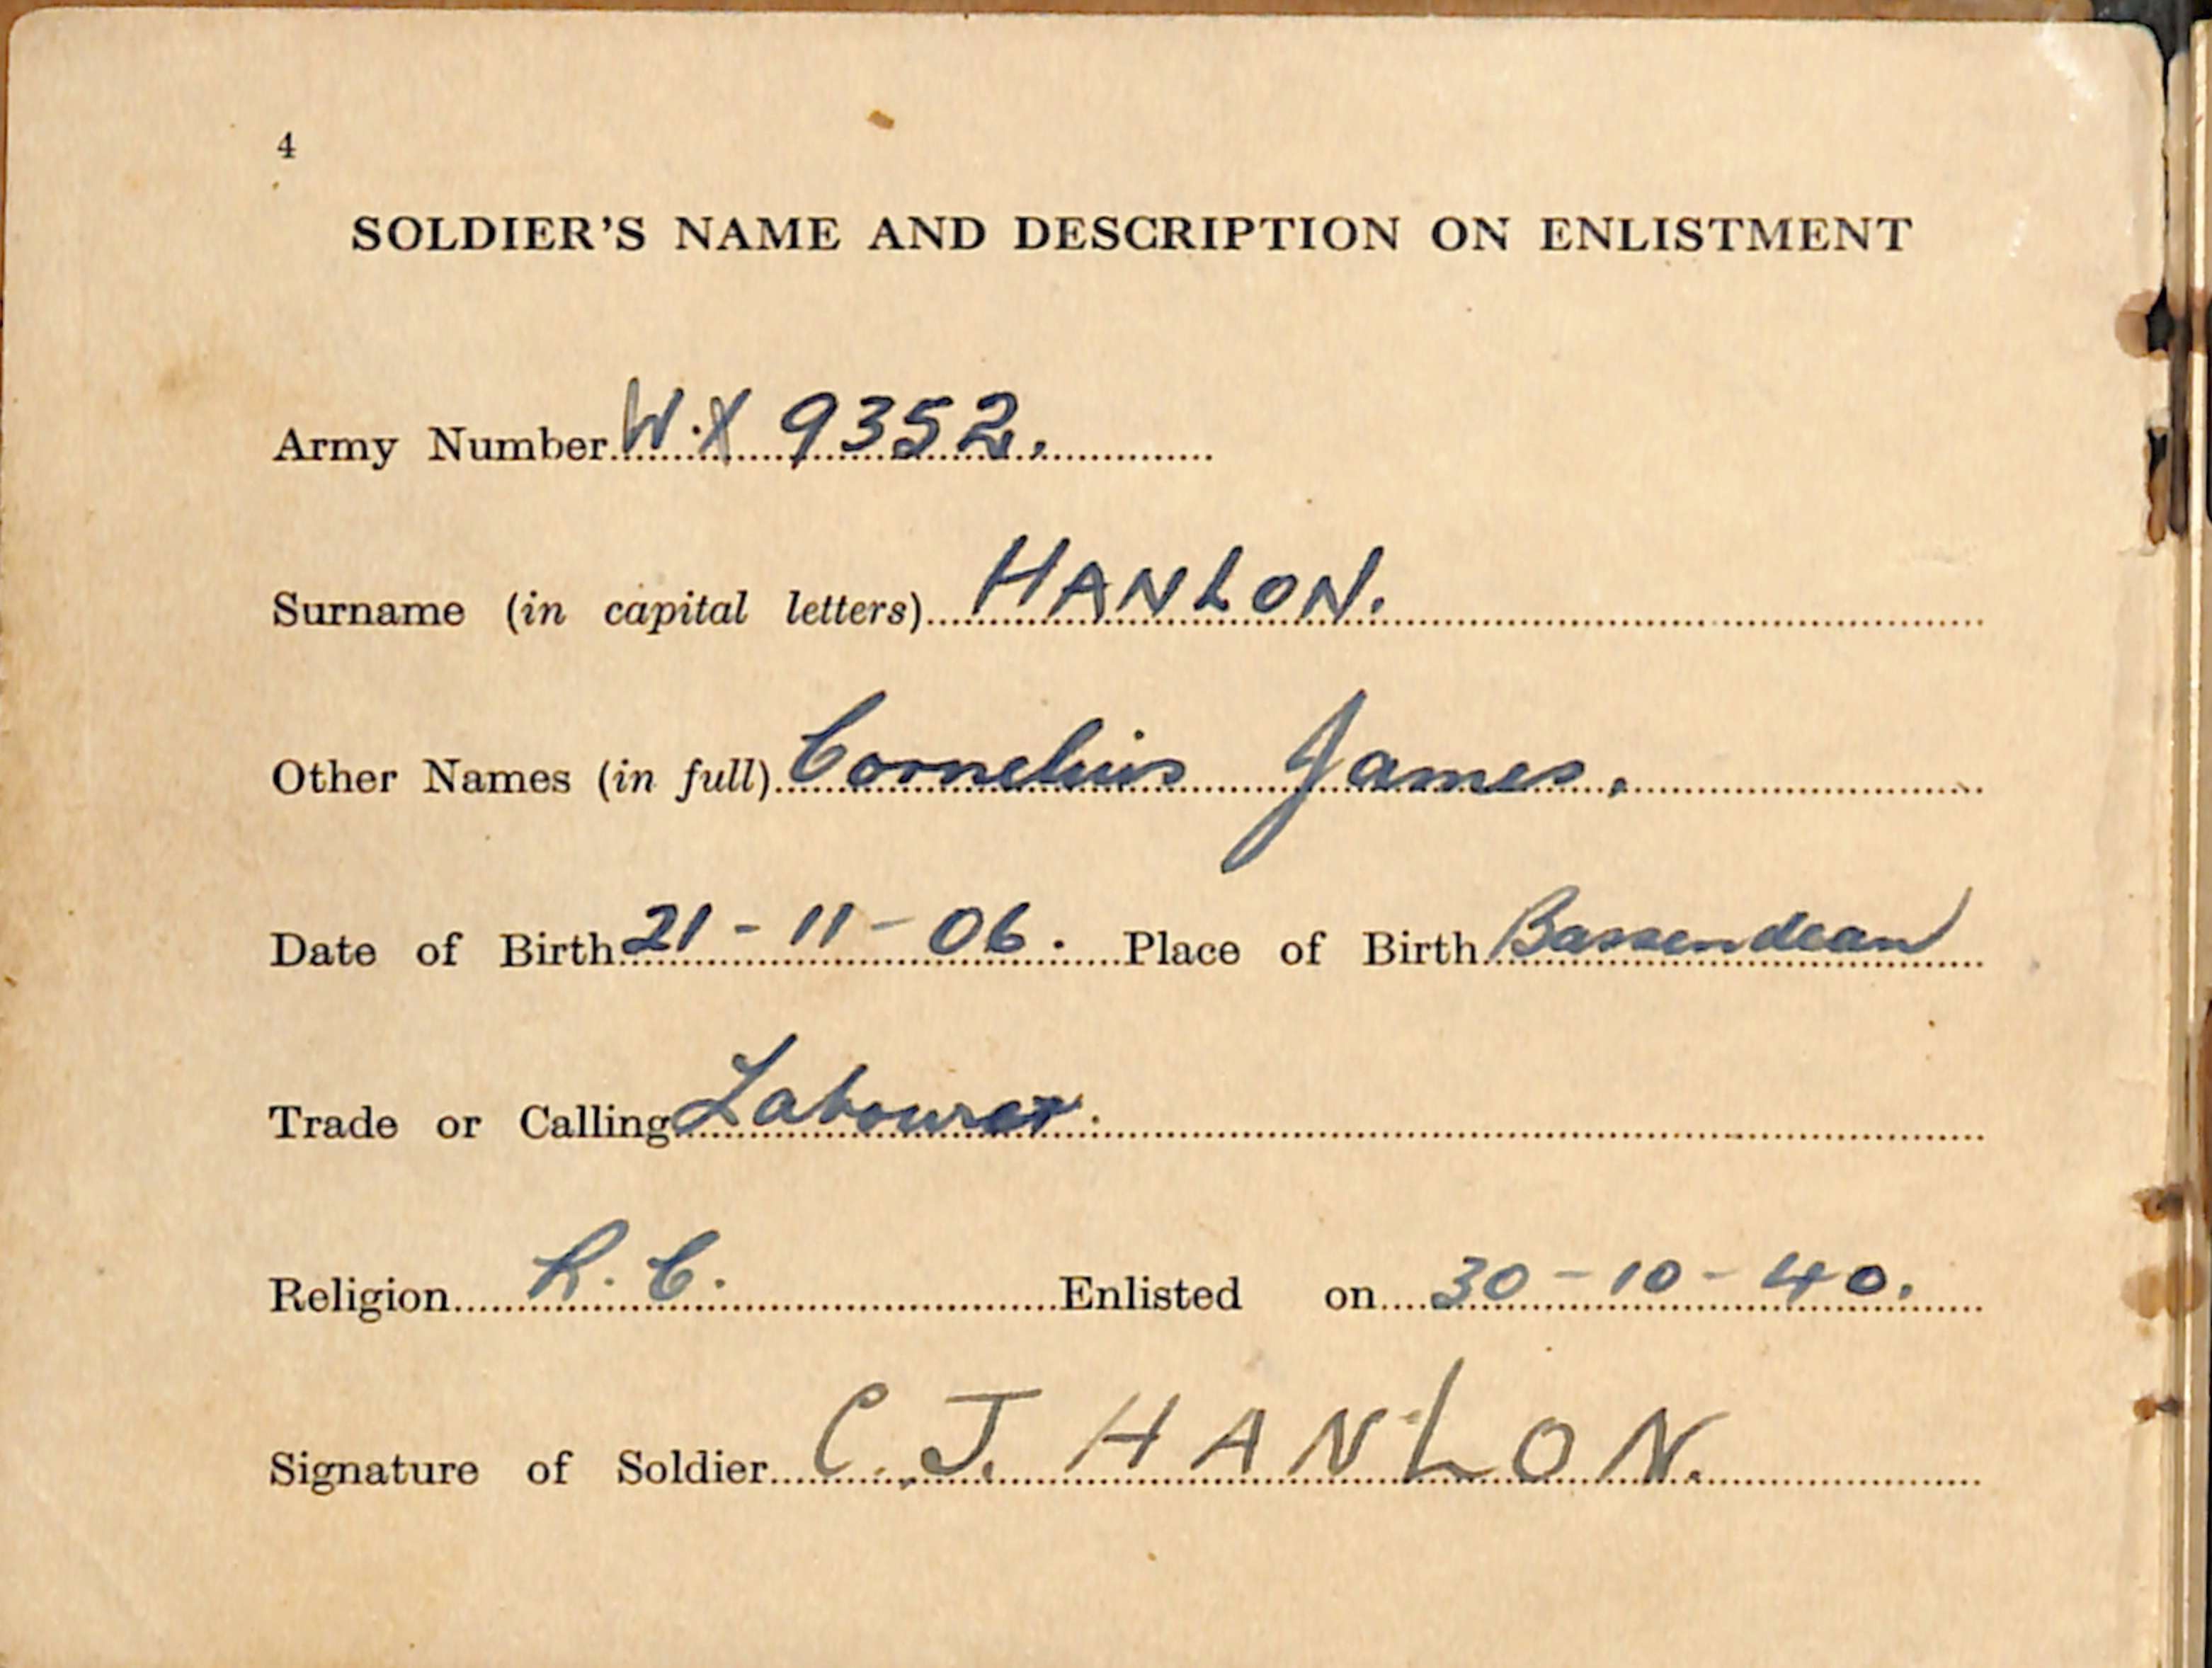 4
SOLDIER'S NAME AND DESCRIPTION ON ENLISTMENT
Army Number W.X 9352.
Surname (in capital letters) HANLON.
Other Names (in full) Cornelius James.
Date of Birth 21-11-06. Place of Birth Bassendean
Trade or Calling Labourer.
Religion R.C. Enlisted on 30-10-40.
Signature of Soldier C.J. HANLON.